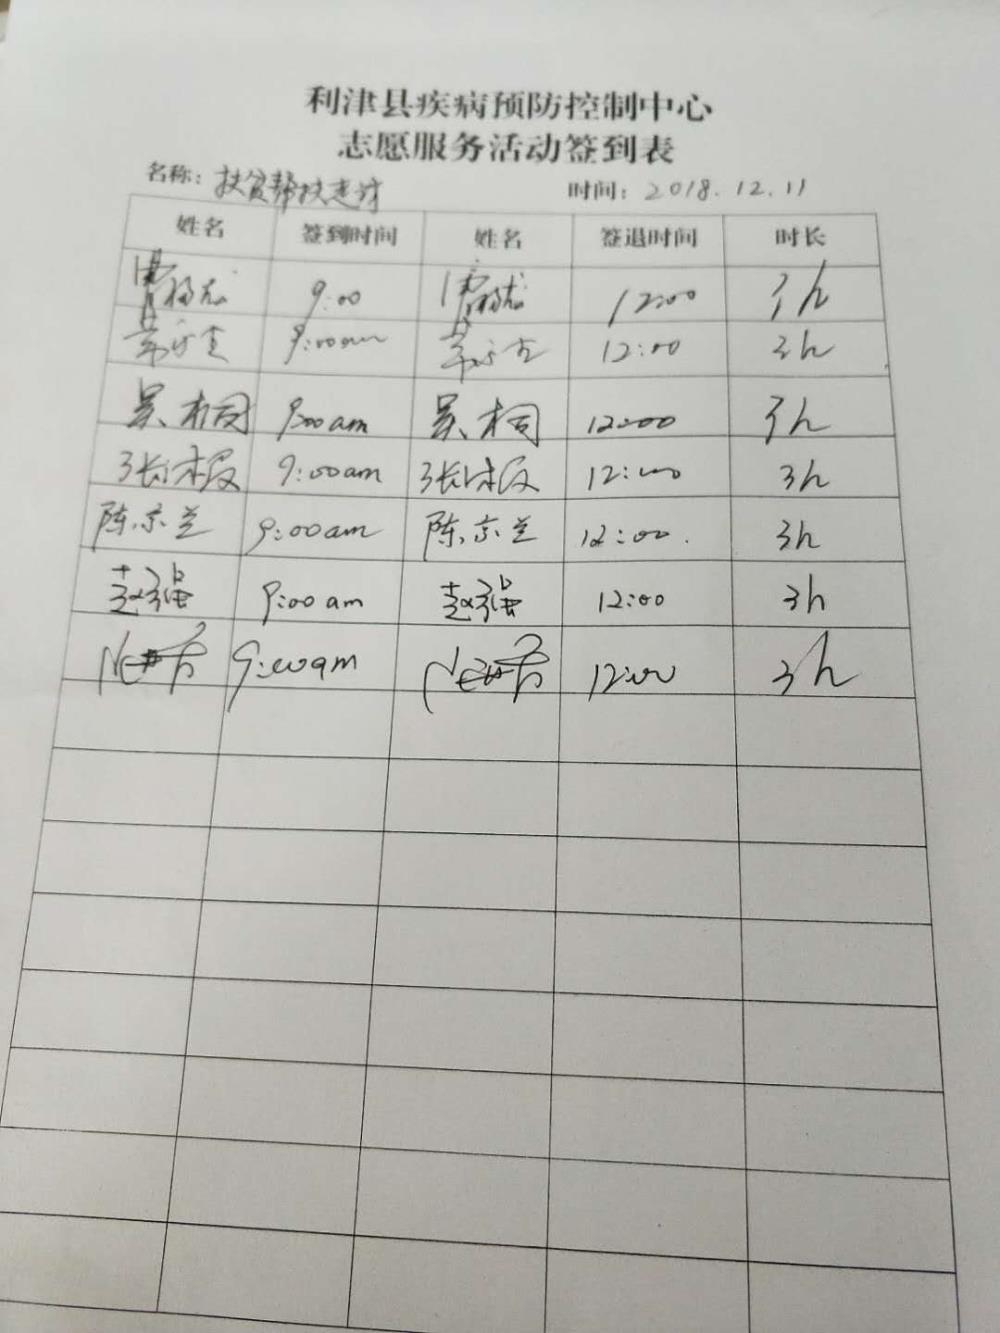 利津县疾病预防控制中心
志愿服务活动签到表
名称: 扶贫帮扶走访 时间: 2018.12.11
姓名 签到时间 姓名 签退时间 时长
9:00 12:00 3h
9:00am 12:00 3h
9:00am 12:00 3h
9:00am 12:00 3h
陈京兰 9:00am 陈京兰 12:00. 3h
赵强 9:00am 赵强 12:00 3h
9:00am 12:00 3h